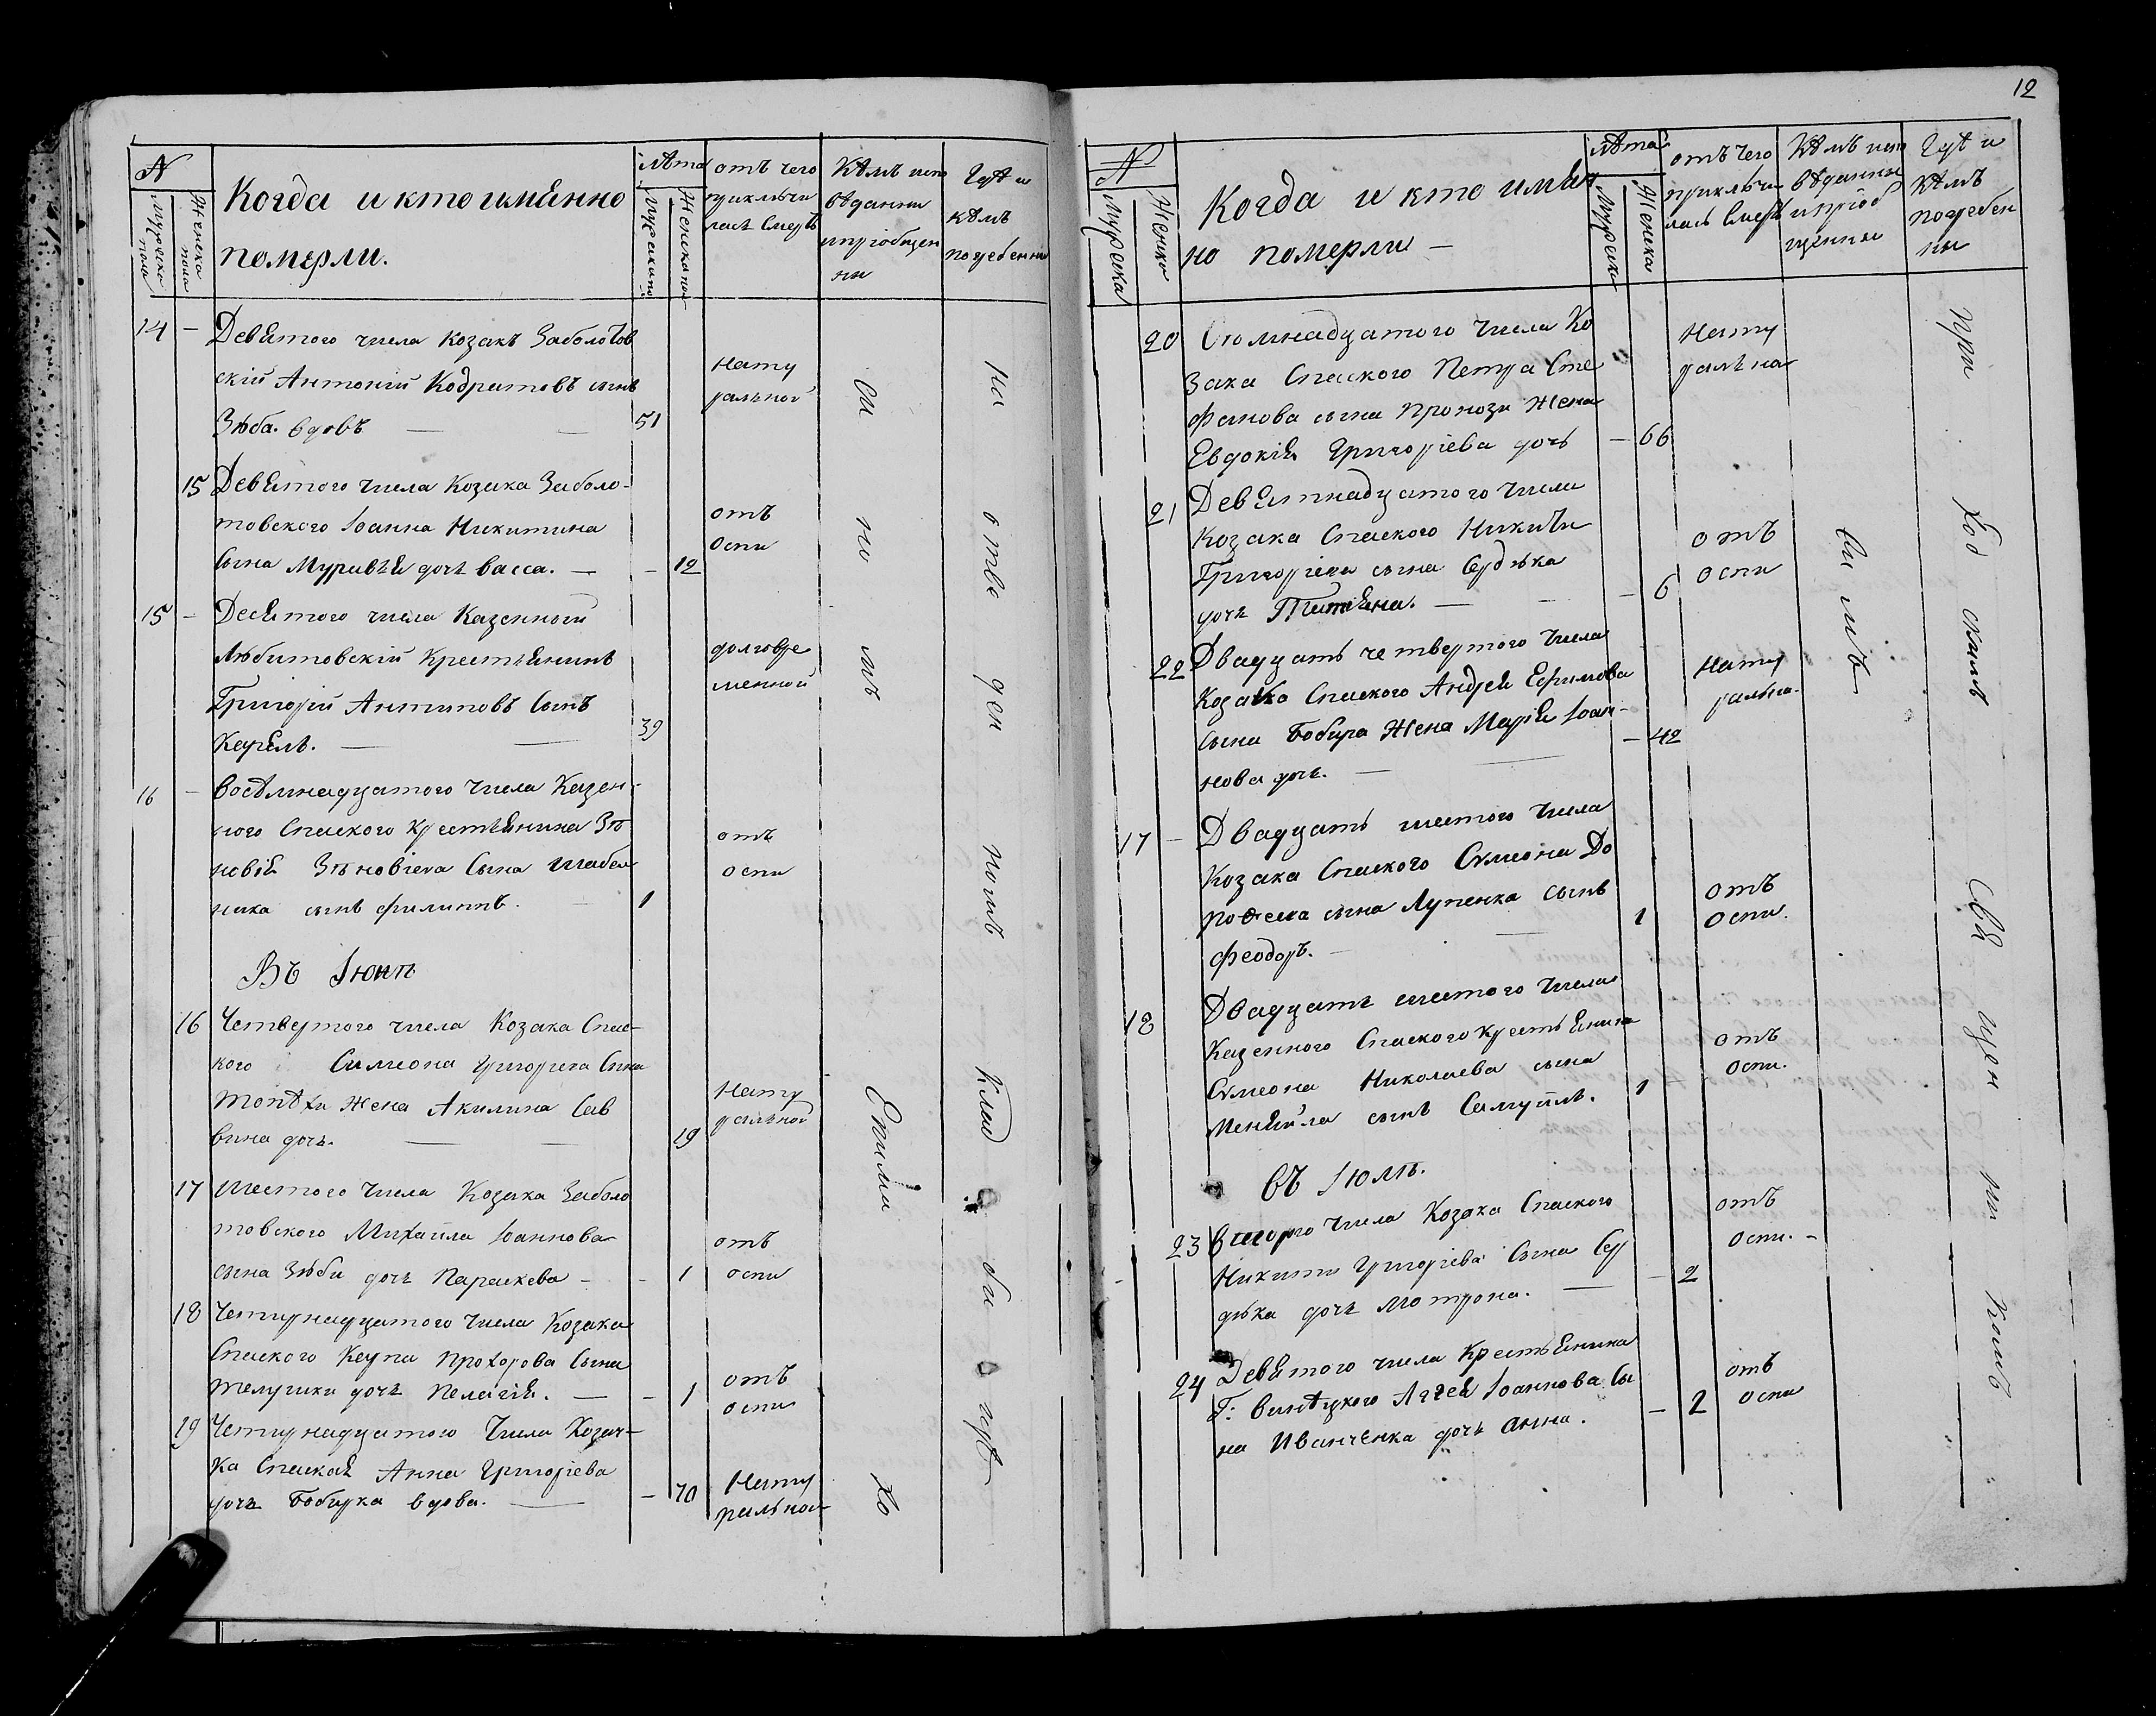 12
N
Мужеска пола
Женска пола
Когда и кто имѣнно
померли.
лѣта
Женска
отъ чего
приключи
лась смерть
Кѣмъ испо
вѣданни
и пріобщен
ни
Гдѣ и
кѣмъ
погребенни
14 — Девятого числа Козакъ Заболотов
скій Антоній Кодратовъ сынъ
Зюба. вдовъ — — 51
нату
ральной
15 Девятого числа Козака Заболо-
товского Іоанна Никитина
сына Муривѣя дочь васса. — — 12
отъ
оспи
15 — Десятого числа Казенный
Любитовскій Крестьянинъ
Григорій Антиповъ сынъ
— — 39
долговре
менной
16 — восѣмнадцатого числа Казен-
ного Спаского Крестьянина Зѣ
новія Зѣновіева сына Шабел
ника сынъ филиппъ. — 1
отъ
оспи
Въ Іюнѣ
16 Четвертого числа Козака Спас-
кого Симеона Григориева сына
жена Акилина Сав
вина дочь. — — 19
нату
ральной
17 Шестого числа Козака Заболо
товского Михаила Іоаннова
сына Зюби дочь Параскева — — 1
отъ
оспи
18 Четирнадцатого числа Козака
Спаского Прохорова сына
дочь Пелагія. — — 1
отъ
оспи
19 Четирнадцатого числа Козач-
ка Спаская Анна Григоріева
дочь Бобирка вдова. — — 70
Нату
ральной
самъ
Епили
хо
на отведенномъ
кладбищѣ
N
Мужеска
Женска
Когда и кто имѣн
но померли —
лѣта
Мужеск
Женска
отъ чего
приключи
лась смерть
Кѣмъ испо
вѣданни
и пріоб
щенни
Гдѣ и
кѣмъ
погребен
ни
20 Осмнадцатого числа Ко
зака Спаского Петра Сте
фанова сына Пронози жена
Евдокія Григоріева дочь — 66
Нату
рална
21 Девятнадцатого числа
Козака Спаского Никити
Григоріева сына Сердюка
дочь Татяна. — — — 6
отъ
оспи
22 Двадцать четвертого числа
Козака Спаского Андрея Ефимова
сына Бобира жена Марія Іоан-
нова дочь. — — — 42
Нату
рална.
17 — Двадцать шестого числа
Козака Спаского Сѵмеона До
рофеева сына Лупенка сынъ
Феодоръ. — — 1
отъ
оспи.
18 Двадцать шестого числа
Казенного Спаского крестьянина
Сѵмеона Николаева сына
сынъ Самуилъ. 1
отъ
оспи.
въ Іюлѣ.
23 второго числа Козака Спаского
Никити Григоріева сына Сер
дюка дочь Мотрона. — — 2
отъ
оспи. —
24 Девятого числа Крестьянина
Г: Аггея Іоаннова сы
на Иванченка дочь Анна. — 2
отъ
оспи
при
ходскимъ
Свя
щен
никомъ